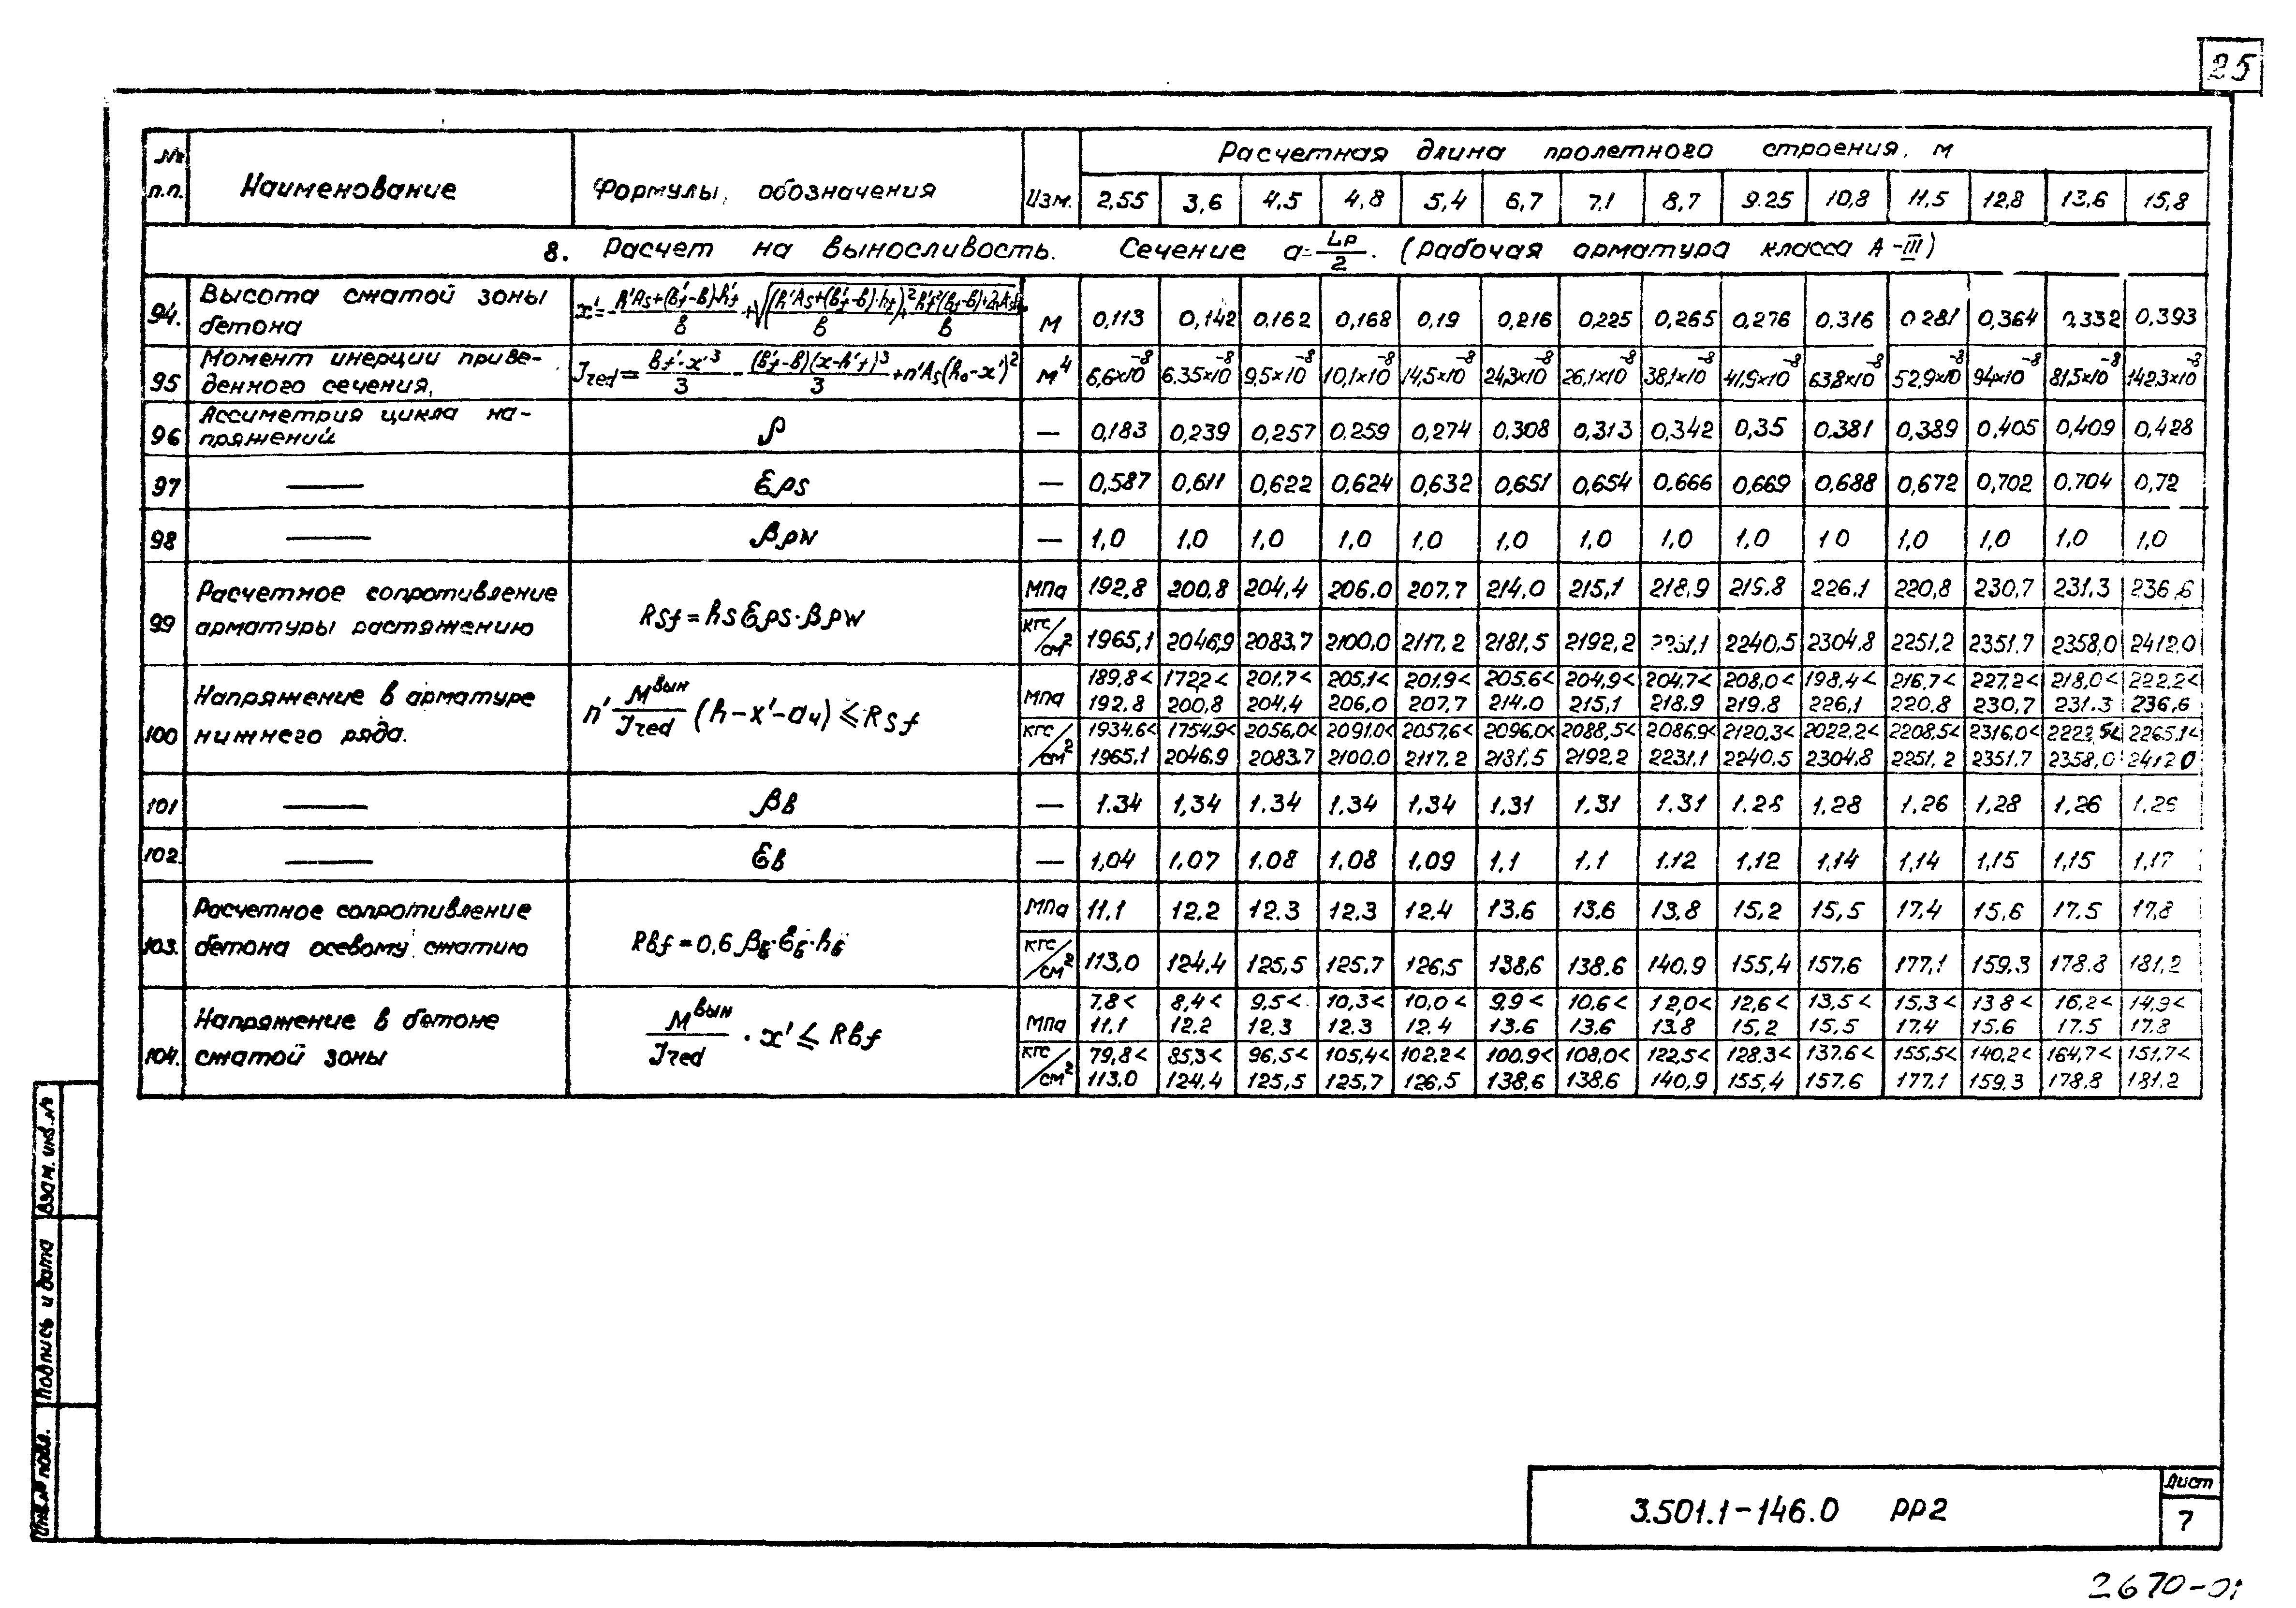 25
№ п.п. Наименование Формулы, обозначения Изм. Расчетная длина пролетного строения, м
2,55 3,6 4,5 4,8 5,4 6,7 7,1 8,7 9.25 10,8 11,5 12,8 13,6 15,8
8. Расчет на выносливость. Сечение a=Lp/2. (рабочая арматура класса А-III)
94. Высота сжатой зоны бетона м 0,113 0,142 0,162 0,168 0,19 0,216 0,225 0,265 0,276 0,316 0,281 0,364 0,332 0,393
95 Момент инерции приве-
денного сечения, Jred = bf'·x'³/3 - (b'f-b)(x-h'f)³/3 + n'As(ho-x')² м⁴ 6,6×10⁻⁸ 6.35×10⁻⁸ 9,5×10⁻⁸ 10,1×10⁻⁸ 14,5×10⁻⁸ 24,3×10⁻⁸ 26,1×10⁻⁸ 38,1×10⁻⁸ 41,9×10⁻⁸ 63,8×10⁻⁸ 52,9×10⁻⁸ 94×10⁻⁸ 81,5×10⁻⁸ 142,3×10⁻⁸
96 Ассиметрия цикла на-
пряжений ρ — 0,183 0,239 0,257 0.259 0,274 0.308 0,313 0,342 0,35 0.381 0,389 0,405 0,409 0,428
97 — Ɛρs — 0,587 0,611 0,622 0,624 0,632 0,651 0,654 0.666 0,669 0,688 0,672 0,702 0.704 0,72
98 — βρw — 1,0 1.0 1,0 1.0 1,0 1,0 1,0 1,0 1,0 1 0 1,0 1,0 1,0 1,0
99 Расчетное сопротивление
арматуры растяжению Rsf = RsƐρs·βρw МПа 192,8 200,8 204,4 206.0 207.7 214.0 215,1 218,9 219.8 226.1 220,8 230,7 231.3 236,6
кгс/см² 1965,1 2046,9 2083,7 2100,0 2117,2 2181,5 2192,2 2231,1 2240,5 2304,8 2251,2 2351,7 2358,0 2412,0
100 Напряжение в арматуре
нижнего ряда. n' Mвын/Jred (h-x'-aч) ≤ Rsf МПа 189,8< 172,2< 201.7< 205,1< 201.9< 205.6< 204,9< 204.7< 208,0< 198,4< 216.7< 227.2< 218,0< 222.2<
192.8 200,8 204,4 206,0 207,7 214.0 215,1 218.9 219.8 226,1 220,8 230,7 231.3 236,6
кгс/см² 1934,6< 1754,9< 2056,0< 2091,0< 2057,6< 2096.0< 2088,5< 2086,9< 2120,3< 2022,2< 2208,5< 2316,0< 2222,5< 2265,1<
1965,1 2046.9 2083.7 2100.0 2117,2 2181,5 2192,2 2231,1 2240,5 2304,8 2251,2 2351.7 2358,0 2412 0
101 — βв — 1.34 1,34 1.34 1.34 1,34 1,31 1.31 1.31 1.28 1,28 1,26 1,28 1,26 1,26
102. — Ɛв — 1,04 1.07 1.08 1.08 1,09 1,1 1,1 1.12 1,12 1,14 1,14 1,15 1,15 1,17
103. Расчетное сопротивление
бетона осевому сжатию Rвf = 0,6 βб·Ɛб·Rб МПа 11.1 12.2 12.3 12.3 12.4 13.6 13.6 13.8 15,2 15,5 17.4 15,6 17.5 17,8
кгс/см² 113,0 124.4 125,5 125,7 126,5 138,6 138.6 140.9 155,4 157,6 177,1 159.3 178.8 181,2
104. Напряжение в бетоне
сжатой зоны Mвын/Jred · x' ≤ Rвf МПа 7.8< 8,4< 9.5< 10,3< 10,0< 9,9< 10,6< 12,0< 12,6< 13,5< 15,3< 13 8< 16,2< 14,9<
11.1 12.2 12.3 12.3 12.4 13.6 13.6 13.8 15,2 15,5 17.4 15.6 17.5 17.8
кгс/см² 79,8< 85,3< 96,5< 105,4< 102.2< 100.9< 108,0< 122,5< 128.3< 137.6< 155,5< 140,2< 164,7< 151.7<
113,0 124,4 125,5 125,7 126,5 138,6 138,6 140,9 155,4 157.6 177.1 159.3 178,8 181.2
Взам. инв. №
Подпись и дата
Инв. № подл.
3.501.1-146.0 РР2
Лист
7
2670-01